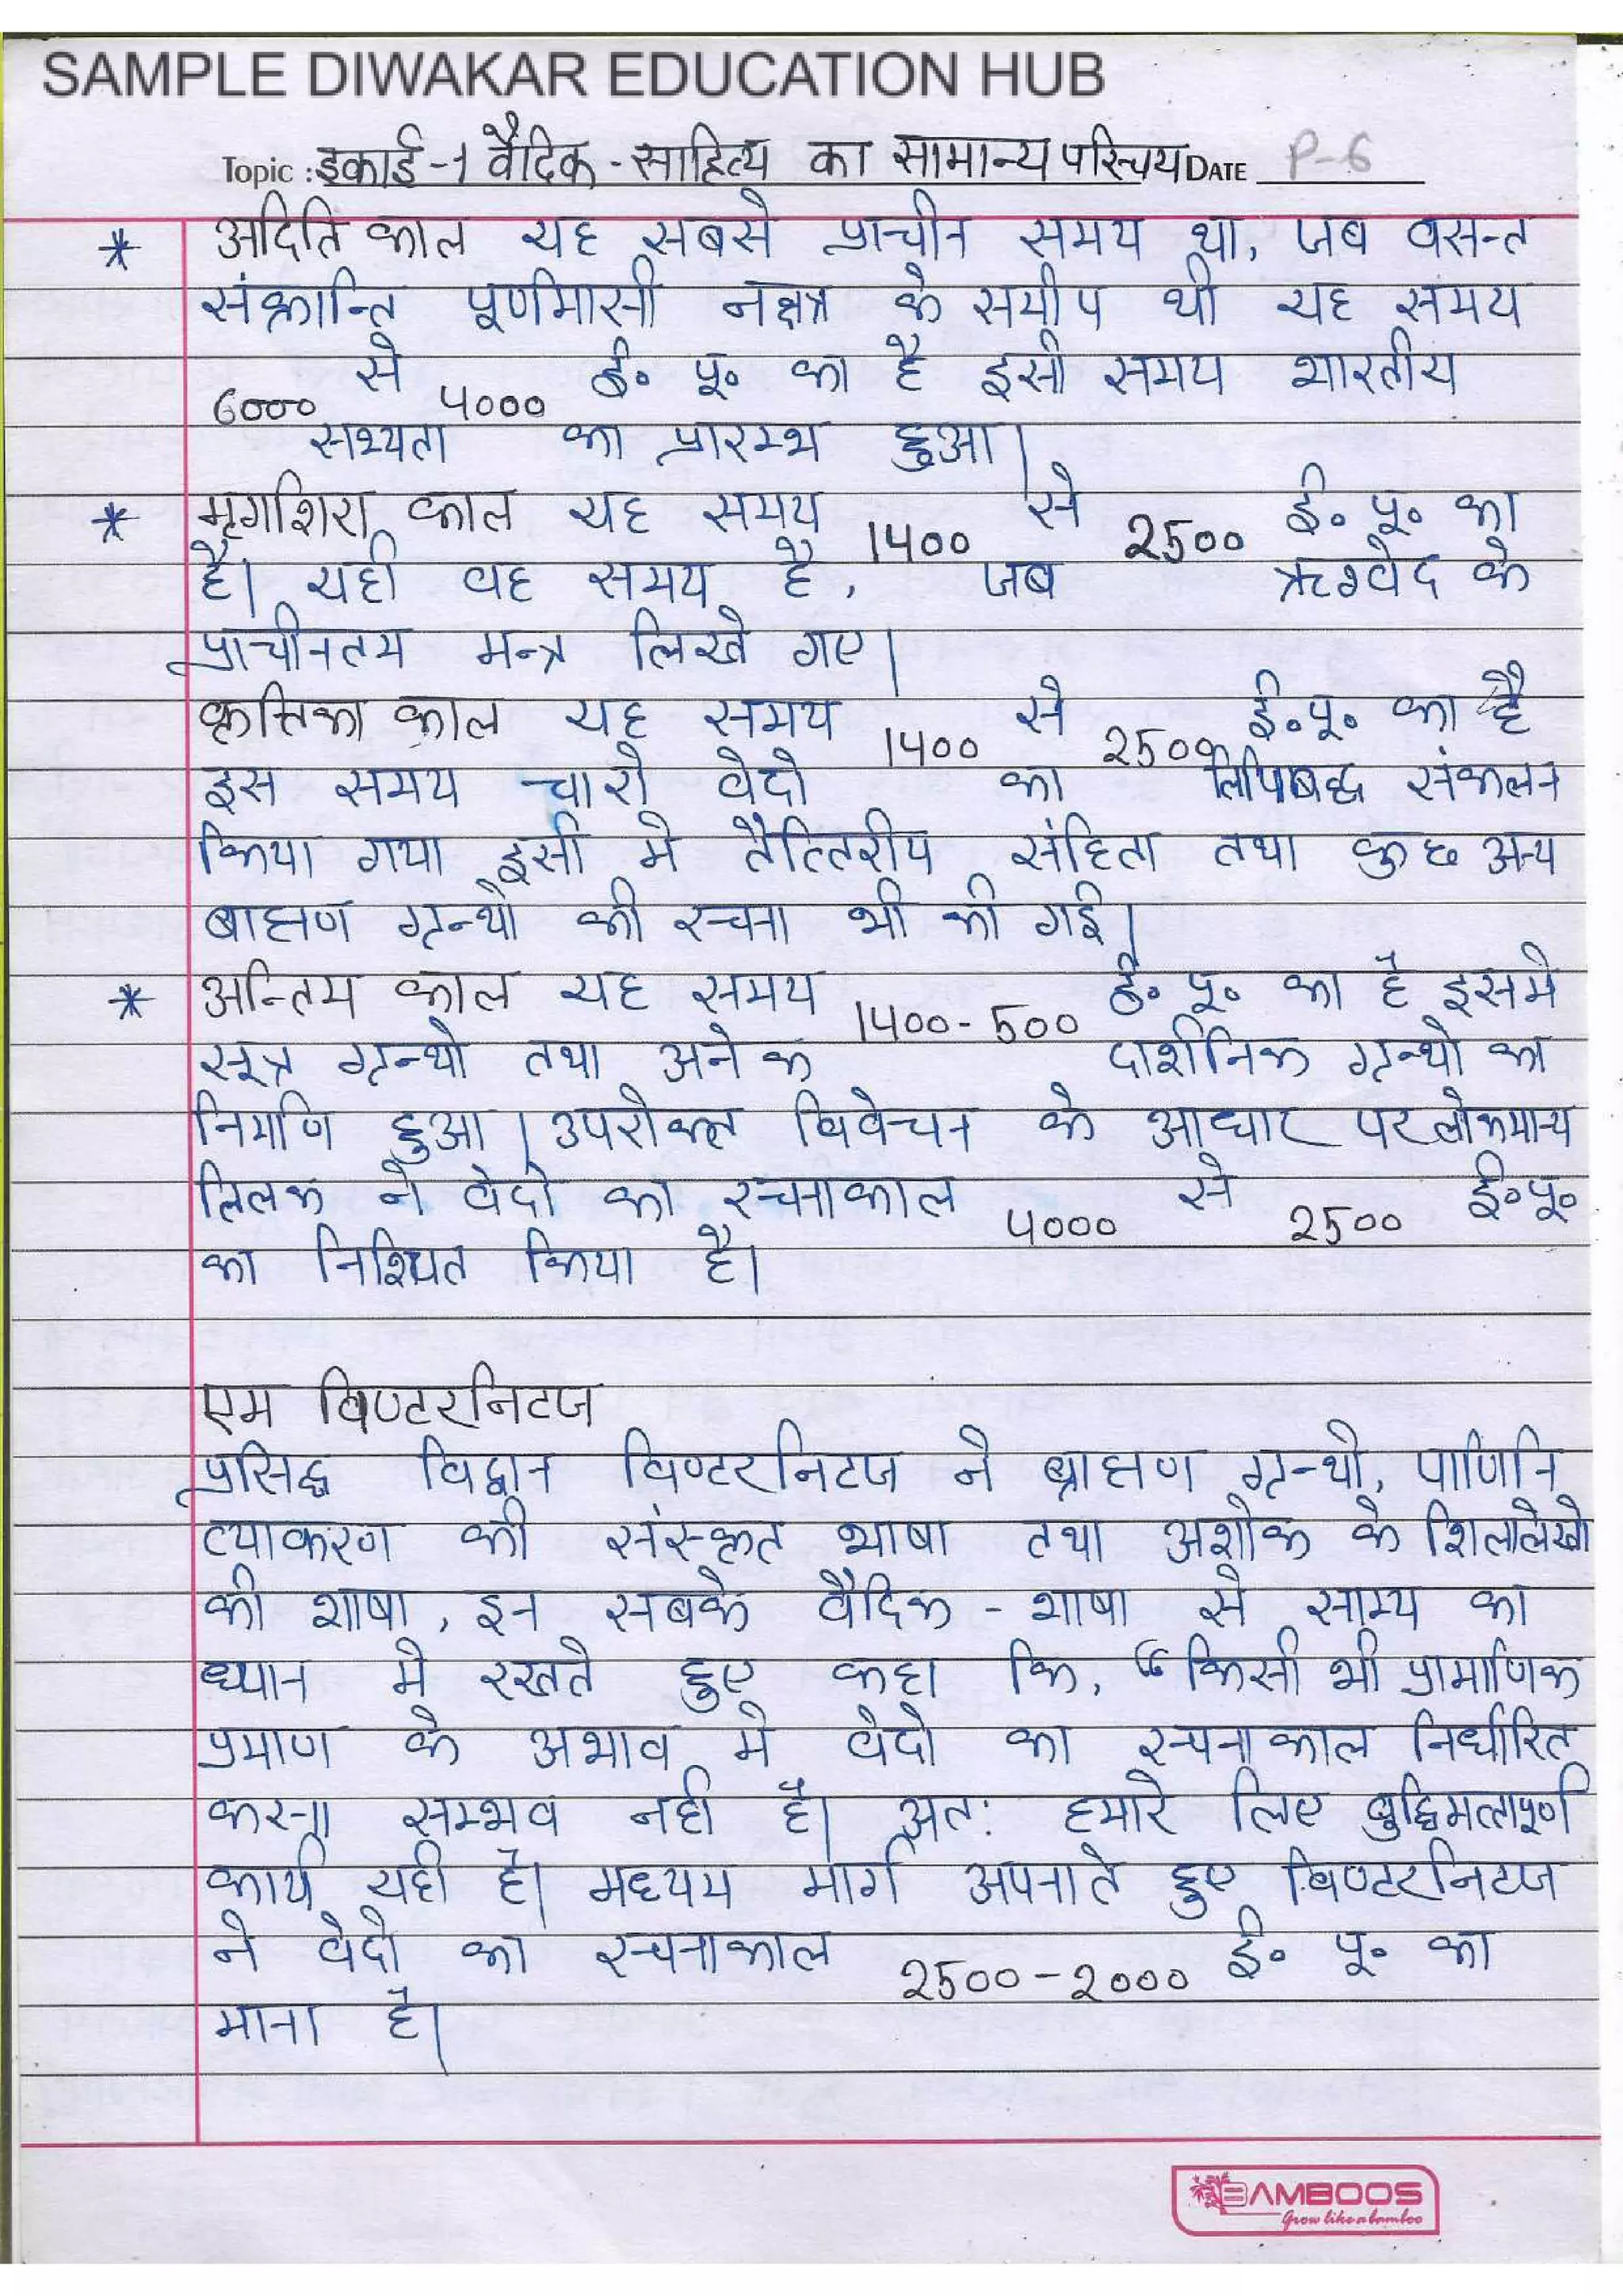 SAMPLE DIWAKAR EDUCATION HUB
Topic : इकाई-1 वैदिक - साहित्य का सामान्य परिचय DATE P-6
* अदिति काल यह सबसे प्राचीन समय था, जब वसन्त
संक्रान्ति पूर्णमासी नक्षत्र के समीप थी यह समय
6000 से 4000 ई. पू. का है इसी समय भारतीय
सभ्यता का प्रारम्भ हुआ।
* मृगशिरा काल यह समय 1400 से 2500 ई. पू. का
है। यही वह समय है, जब ऋग्वेद के
प्राचीनतम मन्त्र लिखे गए।
कृत्तिका काल यह समय 1400 से 2500 ई.पू. का है
इस समय चारो वेदो का लिपिबद्ध संकलन
किया गया इसी मे तैत्तिरीय संहिता तथा कुछ अन्य
ब्राह्मण ग्रन्थो की रचना भी की गई।
* अन्तिम काल यह समय 1400-500 ई. पू. का है इसमे
सूत्र ग्रन्थो तथा अनेक दार्शनिक ग्रन्थो का
निर्माण हुआ। उपरोक्त विवेचन के आधार पर लोकमान्य
तिलक ने वेदो का रचनाकाल 4000 से 2500 ई.पू.
का निश्चित किया है।
एम विण्टरनिटज
प्रसिद्ध विद्वान विण्टरनिटज ने ब्राह्मण ग्रन्थो, पाणिनि
व्याकरण की संस्कृत भाषा तथा अशोक के शिलालेखो
की भाषा, इन सबके वैदिक - भाषा से साम्य का
ध्यान मे रखते हुए कहा कि, “किसी भी प्रामाणिक
प्रमाण के अभाव मे वेदो का रचनाकाल निर्धारित
करना सम्भव नही है। अत: हमारे लिए बुद्धिमत्तापूर्ण
कार्य यही है। मध्यम मार्ग अपनाते हुए विण्टरनिटज
ने वेदो का रचनाकाल 2500-2000 ई. पू. का
माना है।
BAMBOOS
Grow like a bamboo